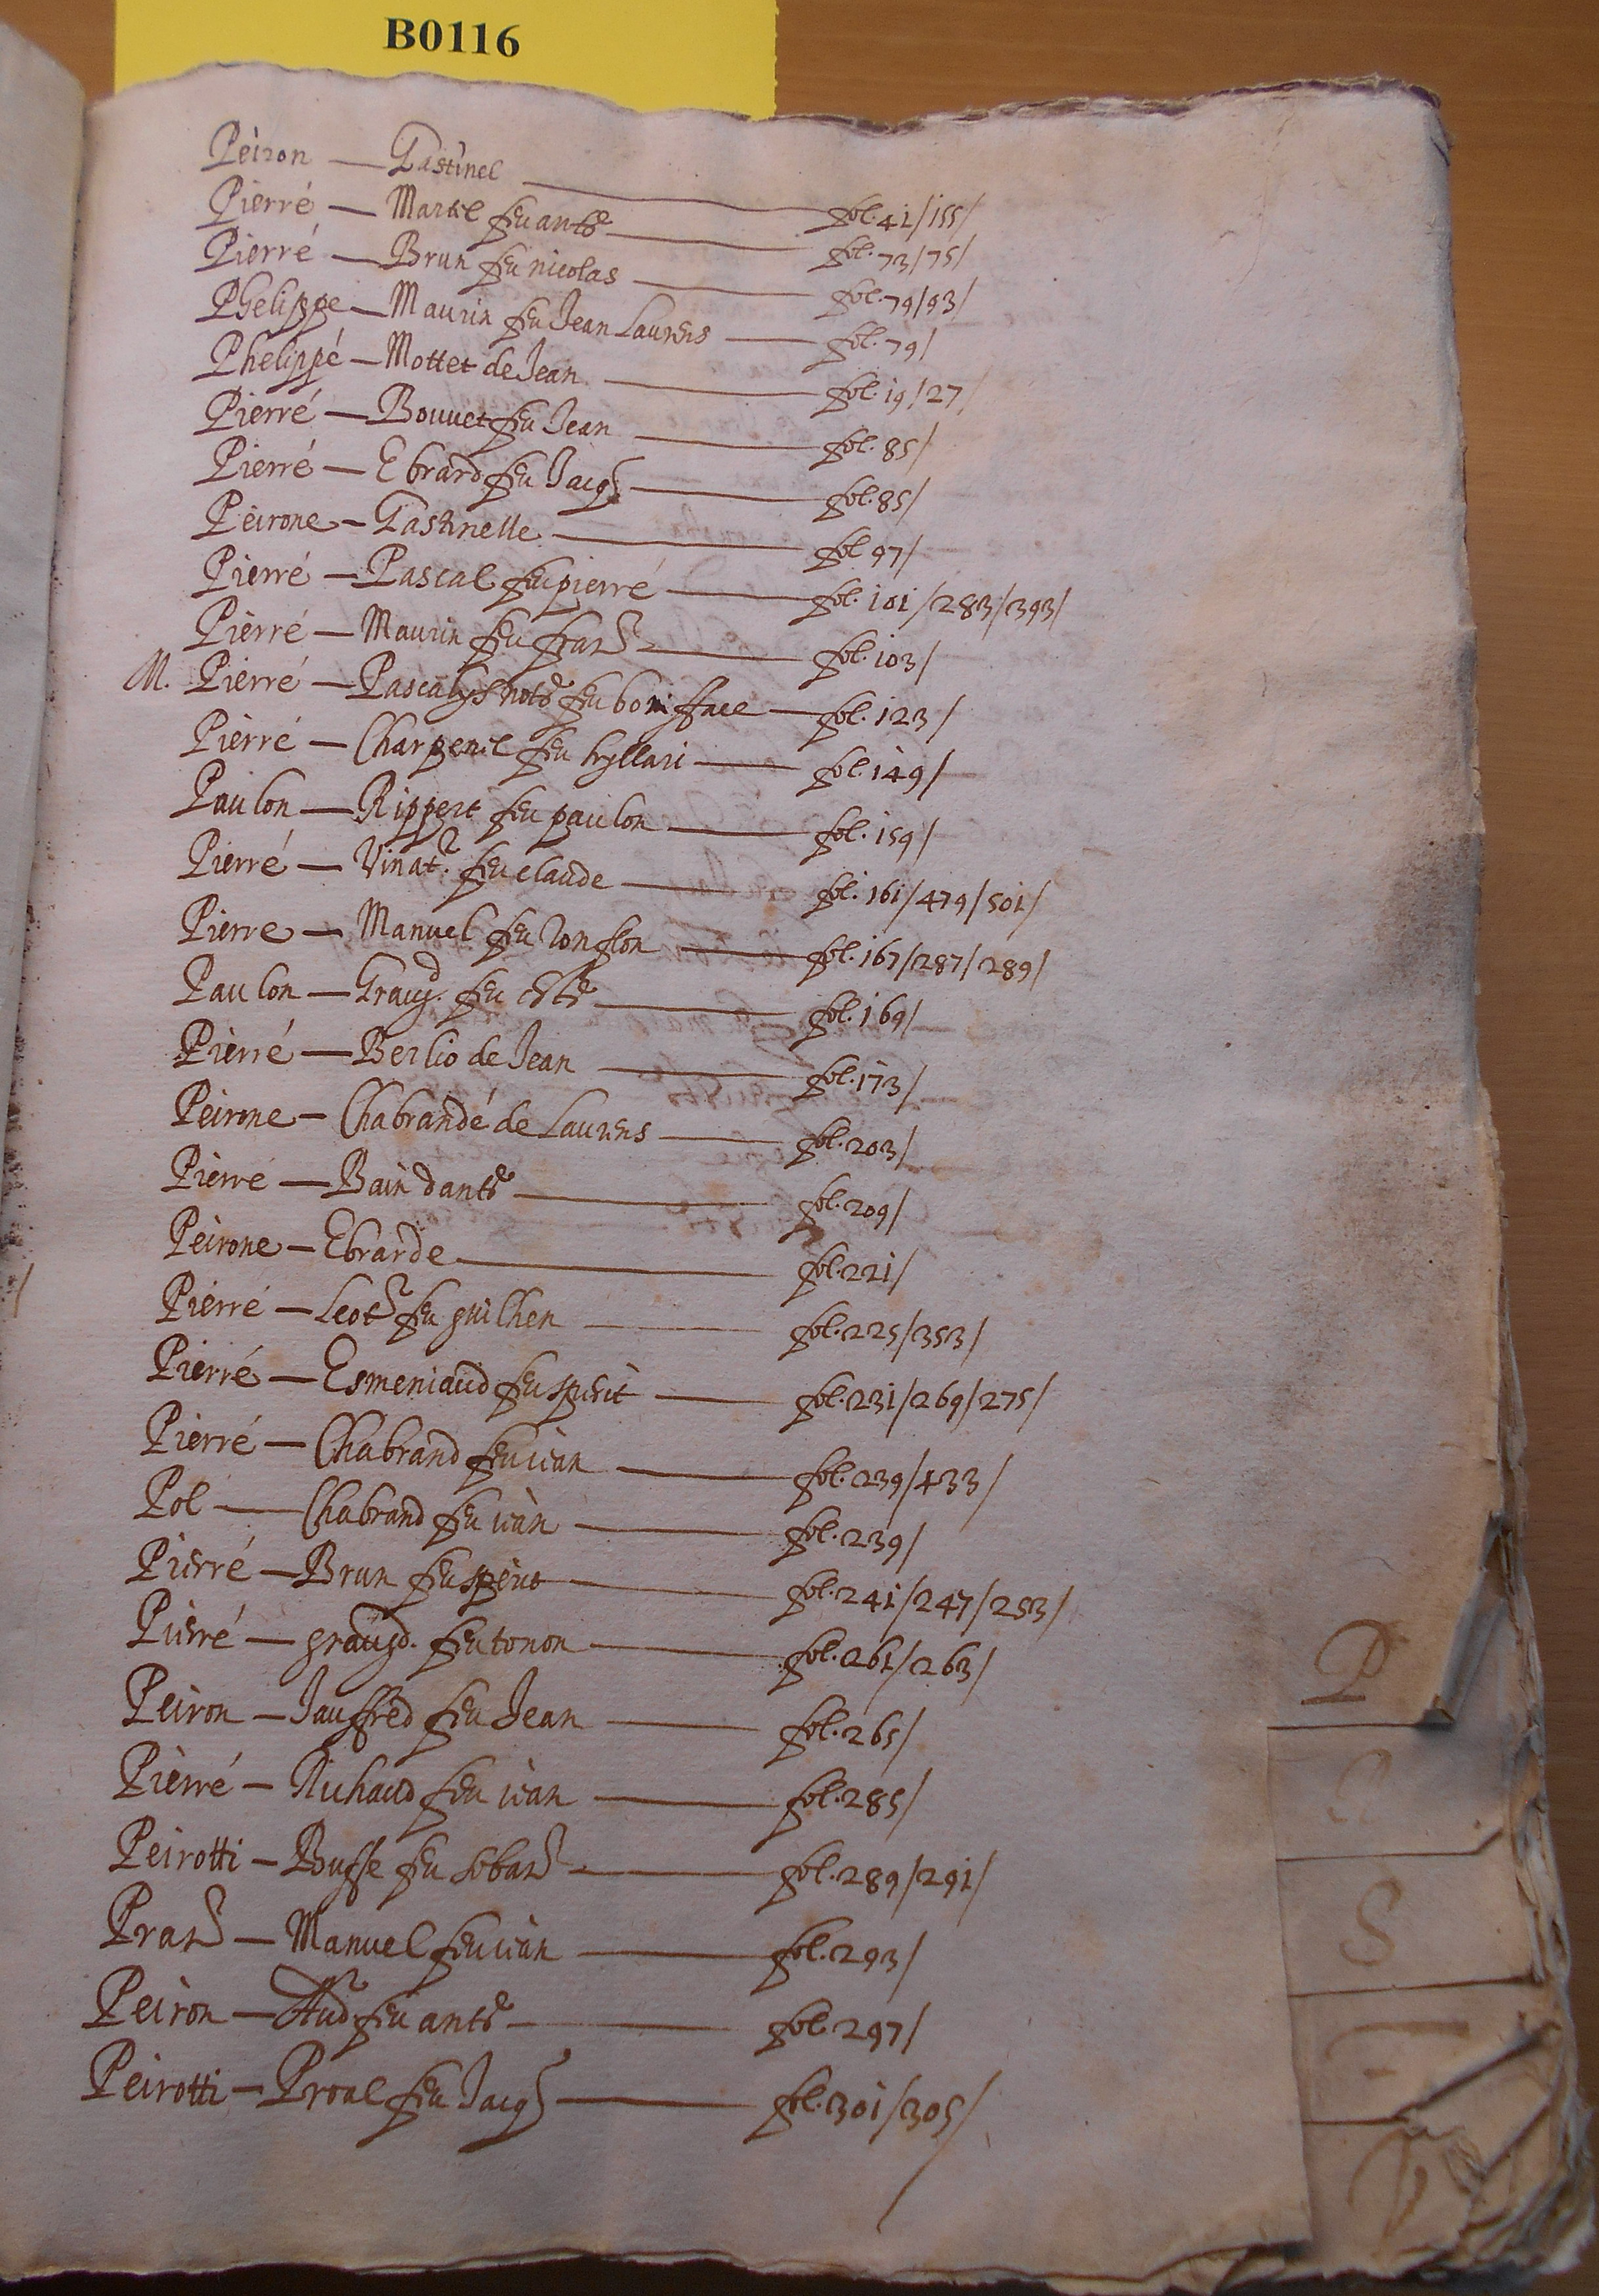 B0116
Peiron — Gastinel — fol. 41/155/
Pierré — Martel feu anthe — fol. 73/75/
Pierré — Brun feu nicolas — fol. 79/93/
Phelippe — Maurin feu Jean Laurens — fol. 79/
Phelippé — Mottet de Jean — fol. 19/27/
Pierré — Bouuet feu Jean — fol. 85/
Pierré — Ebrard feu Jacqs — fol. 85/
Peirone — Gastinelle — fol 97/
Pierré — Pascal feu pierré — fol. 101/283/393/
Pierré — Maurin feu frans — fol. 103/
M. Pierré — Pascalys note feu boniface — fol. 123/
Pierré — Charpenel feu hyllari — fol. 149/
Paulon — Rippert feu paulon — fol. 159/
Pierré — Vinatr. feu claude — fol. 161/479/501/
Pierre — Manuel feu — fol. 167/287/289/
Paulon — Graugd. feu — fol. 169/
Pierré — Berlio de Jean — fol. 173/
Peirone — Chabrandé de Laurens — fol. 203/
Pierré — Bain danthe — fol. 209/
Peirone — Ebrarde — fol. 221/
Pierré — Leotr feu guilhen — fol. 225/353/
Pierré — Esmeniaud feu sperit — fol. 231/269/275/
Pierré — Chabrand feu ian — fol. 239/433/
Pol — Chabrand feu ian — fol. 239/
Pierré — Brun feu sperit — fol. 241/247/253/
Pierré — graugd. feu tonon — fol. 261/263/
Peiron — Jauffred feu Jean — fol. 265/
Pierré — Richaud feu ian — fol. 285/
Peirotti — Buffe feu sebans — fol. 289/291/
Prans — Manuel feu ian — fol. 293/
Peiron — Audr feu anthe — fol. 297/
Peirotti — Proal feu Jacqs — fol. 301/305/
P
S
T
V